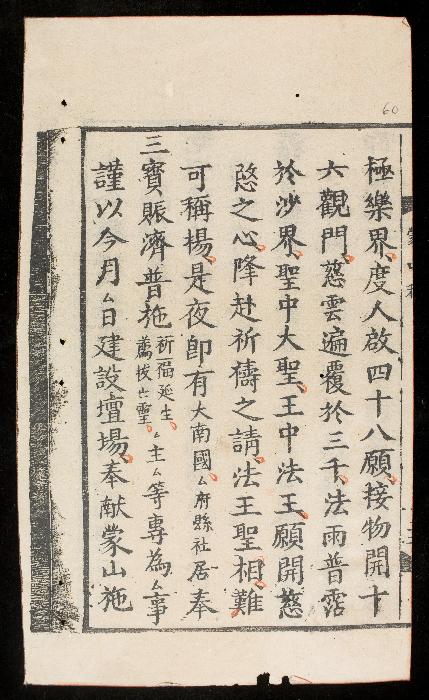 60
極樂界、度人啟四十八願、接物開十
六觀門、慈雲遍覆於三千、法雨普霑
於沙界、聖中大聖、王中法王、願開慈
愍之心、降赴祈禱之請、法王聖相、難
可稱揚、是夜卽有大南國、厶府縣社居奉
三寶賑濟普施祈福延生、薦拔亡靈、厶主厶等專為厶事
謹以今月厶日建設壇場、奉献蒙山施